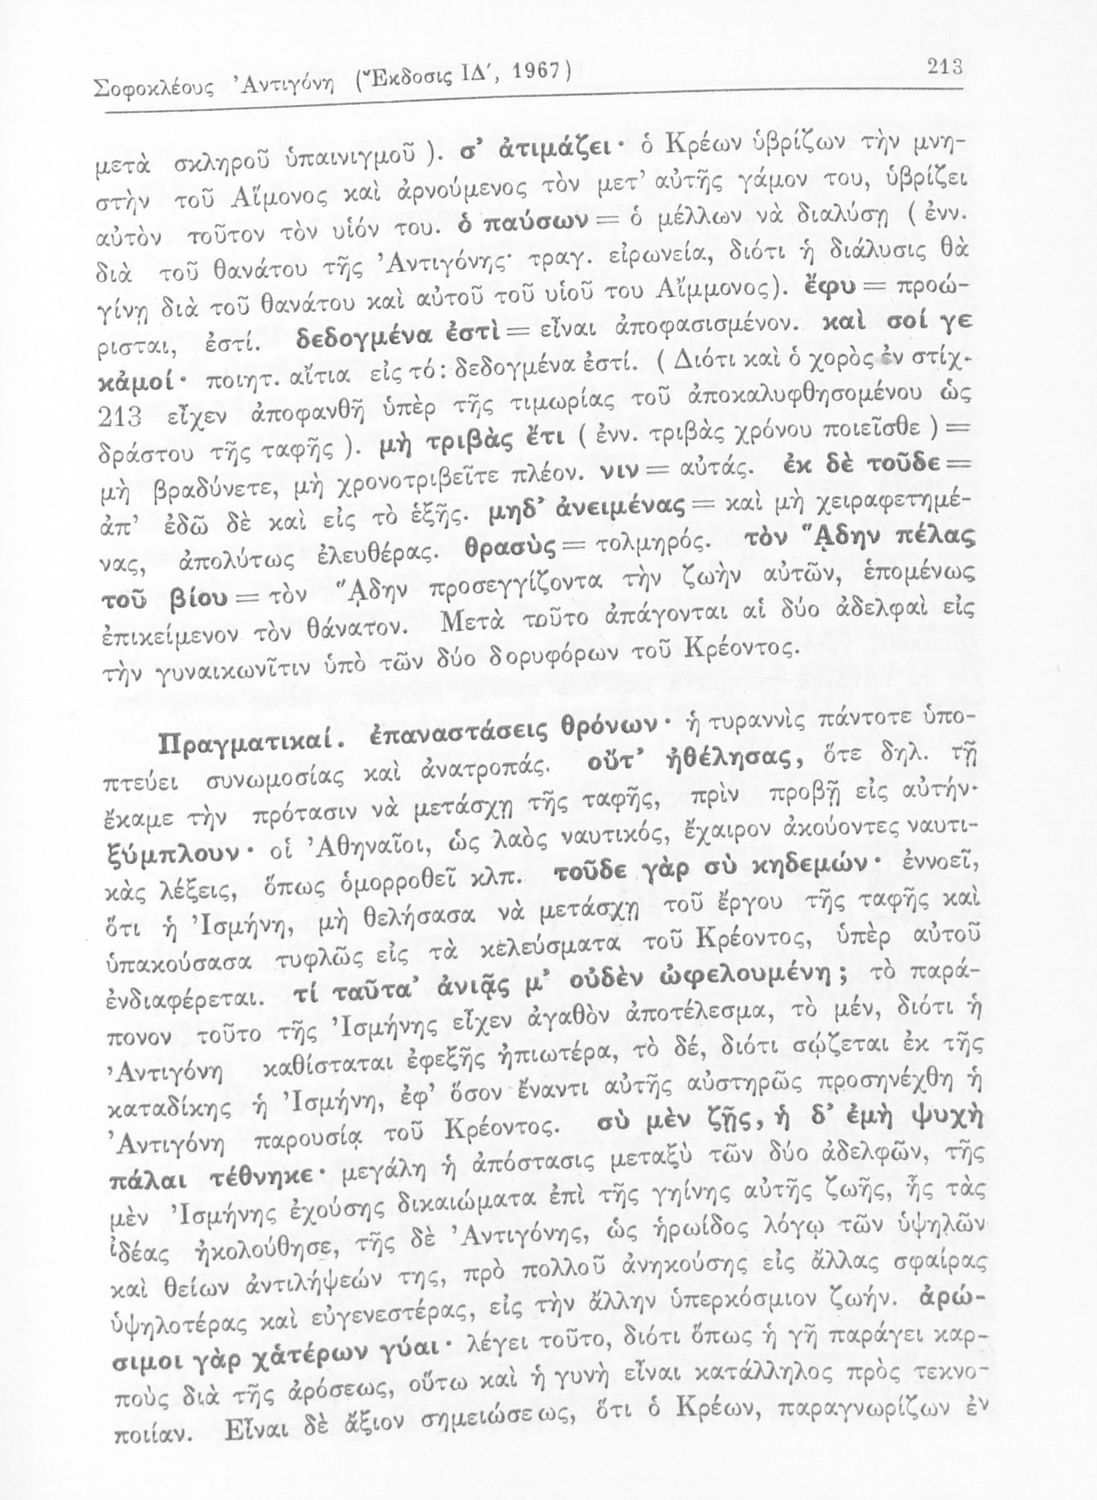 Σοφοκλέους Ἀντιγόνη (Ἔκδοσις ΙΔ΄, 1967) 213
μετὰ σκληροῦ ὑπαινιγμοῦ ). σ’ ἀτιμάζει· ὁ Κρέων ὑβρίζων τὴν μνη-
στὴν τοῦ Αἵμονος καὶ ἀρνούμενος τὸν μετ’ αὐτῆς γάμον του, ὑβρίζει
αὐτὸν τοῦτον τὸν υἱόν του. ὁ παύσων = ὁ μέλλων νὰ διαλύσῃ ( ἐνν.
διὰ τοῦ θανάτου τῆς Ἀντιγόνης· τραγ. εἰρωνεία, διότι ἡ διάλυσις θὰ
γίνῃ διὰ τοῦ θανάτου καὶ αὐτοῦ τοῦ υἱοῦ του Αἵμμονος). ἔφυ = προώ-
ρισται, ἐστί. δεδογμένα ἐστὶ = εἶναι ἀποφασισμένον. καὶ σοί γε
κἀμοί· ποιητ. αἴτια εἰς τό : δεδογμένα ἐστί. ( Διότι καὶ ὁ χορὸς ἐν στίχ.
213 εἶχεν ἀποφανθῆ ὑπὲρ τῆς τιμωρίας τοῦ ἀποκαλυφθησομένου ὡς
δράστου τῆς ταφῆς ). μὴ τριβὰς ἔτι ( ἐνν. τριβὰς χρόνου ποιεῖσθε ) =
μὴ βραδύνετε, μὴ χρονοτριβεῖτε πλέον. νιν = αὐτάς. ἐκ δὲ τοῦδε =
ἀπ’ ἐδῶ δὲ καὶ εἰς τὸ ἑξῆς. μηδ’ ἀνειμένας = καὶ μὴ χειραφετημέ-
νας, ἀπολύτως ἐλευθέρας. θρασὺς = τολμηρός. τὸν Ἅδην πέλας
τοῦ βίου = τὸν Ἅδην προσεγγίζοντα τὴν ζωὴν αὐτῶν, ἑπομένως
ἐπικείμενον τὸν θάνατον. Μετὰ τοῦτο ἀπάγονται αἱ δύο ἀδελφαὶ εἰς
τὴν γυναικωνῖτιν ὑπὸ τῶν δύο δορυφόρων τοῦ Κρέοντος.
Πραγματικαί. ἐπαναστάσεις θρόνων· ἡ τυραννὶς πάντοτε ὑπο-
πτεύει συνωμοσίας καὶ ἀνατροπάς. οὔτ’ ἠθέλησας, ὅτε δηλ. τῇ
ἔκαμε τὴν πρότασιν νὰ μετάσχῃ τῆς ταφῆς, πρὶν προβῇ εἰς αὐτήν·
ξύμπλουν· οἱ Ἀθηναῖοι, ὡς λαὸς ναυτικός, ἔχαιρον ἀκούοντες ναυτι-
κὰς λέξεις, ὅπως ὁμορροθεῖ κλπ. τοῦδε γὰρ σὺ κηδεμών· ἐννοεῖ,
ὅτι ἡ Ἰσμήνη, μὴ θελήσασα νὰ μετάσχῃ τοῦ ἔργου τῆς ταφῆς καὶ
ὑπακούσασα τυφλῶς εἰς τὰ κελεύσματα τοῦ Κρέοντος, ὑπὲρ αὐτοῦ
ἐνδιαφέρεται. τί ταῦτα’ ἀνιᾷς μ’ οὐδὲν ὠφελουμένη; τὸ παρά-
πονον τοῦτο τῆς Ἰσμήνης εἶχεν ἀγαθὸν ἀποτέλεσμα, τὸ μέν, διότι ἡ
Ἀντιγόνη καθίσταται ἐφεξῆς ἠπιωτέρα, τὸ δέ, διότι σῴζεται ἐκ τῆς
καταδίκης ἡ Ἰσμήνη, ἐφ’ ὅσον ἔναντι αὐτῆς αὐστηρῶς προσηνέχθη ἡ
Ἀντιγόνη παρουσίᾳ τοῦ Κρέοντος. σὺ μὲν ζῇς, ἡ δ’ ἐμὴ ψυχὴ
πάλαι τέθνηκε· μεγάλη ἡ ἀπόστασις μεταξὺ τῶν δύο ἀδελφῶν, τῆς
μὲν Ἰσμήνης ἐχούσης δικαιώματα ἐπὶ τῆς γηίνης αὐτῆς ζωῆς, ἧς τὰς
ἰδέας ἠκολούθησε, τῆς δὲ Ἀντιγόνης, ὡς ἡρωίδος λόγῳ τῶν ὑψηλῶν
καὶ θείων ἀντιλήψεών της, πρὸ πολλοῦ ἀνηκούσης εἰς ἄλλας σφαίρας
ὑψηλοτέρας καὶ εὐγενεστέρας, εἰς τὴν ἄλλην ὑπερκόσμιον ζωήν. ἀρώ-
σιμοι γὰρ χἀτέρων γύαι· λέγει τοῦτο, διότι ὅπως ἡ γῆ παράγει καρ-
ποὺς διὰ τῆς ἀρόσεως, οὕτω καὶ ἡ γυνὴ εἶναι κατάλληλος πρὸς τεκνο-
ποιίαν. Εἶναι δὲ ἄξιον σημειώσεως, ὅτι ὁ Κρέων, παραγνωρίζων ἐν